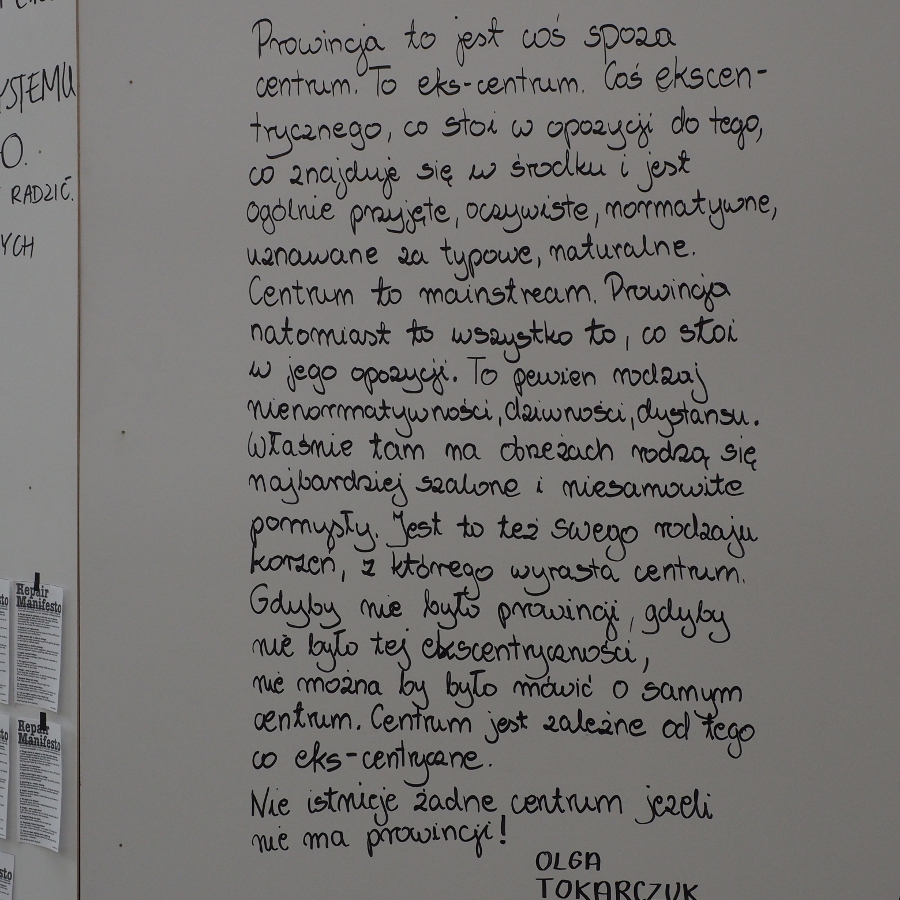 YSTEMU
O.
RADZIĆ.
YCH
Prowincja to jest coś spoza
centrum. To eks-centrum. Coś ekscen-
trycznego, co stoi w opozycji do tego,
co znajduje się w środku i jest
ogólnie przyjęte, oczywiste, normatywne,
uznawane za typowe, naturalne.
Centrum to mainstream. Prowincja
natomiast to wszystko to, co stoi
w jego opozycji. To pewien rodzaj
nienormatywności, dziwności, dystansu.
Właśnie tam na obrzeżach rodzą się
najbardziej szalone i niesamowite
pomysły. Jest to też swego rodzaju
korzeń, z którego wyrasta centrum.
Gdyby nie było prowincji, gdyby
nie było tej ekscentryczności,
nie można by było mówić o samym
centrum. Centrum jest zależne od tego
co eks-centryczne.
Nie istnieje żadne centrum jeżeli
nie ma prowincji!
OLGA
TOKARCZUK
Repair
Manifesto
Repair
Manifesto